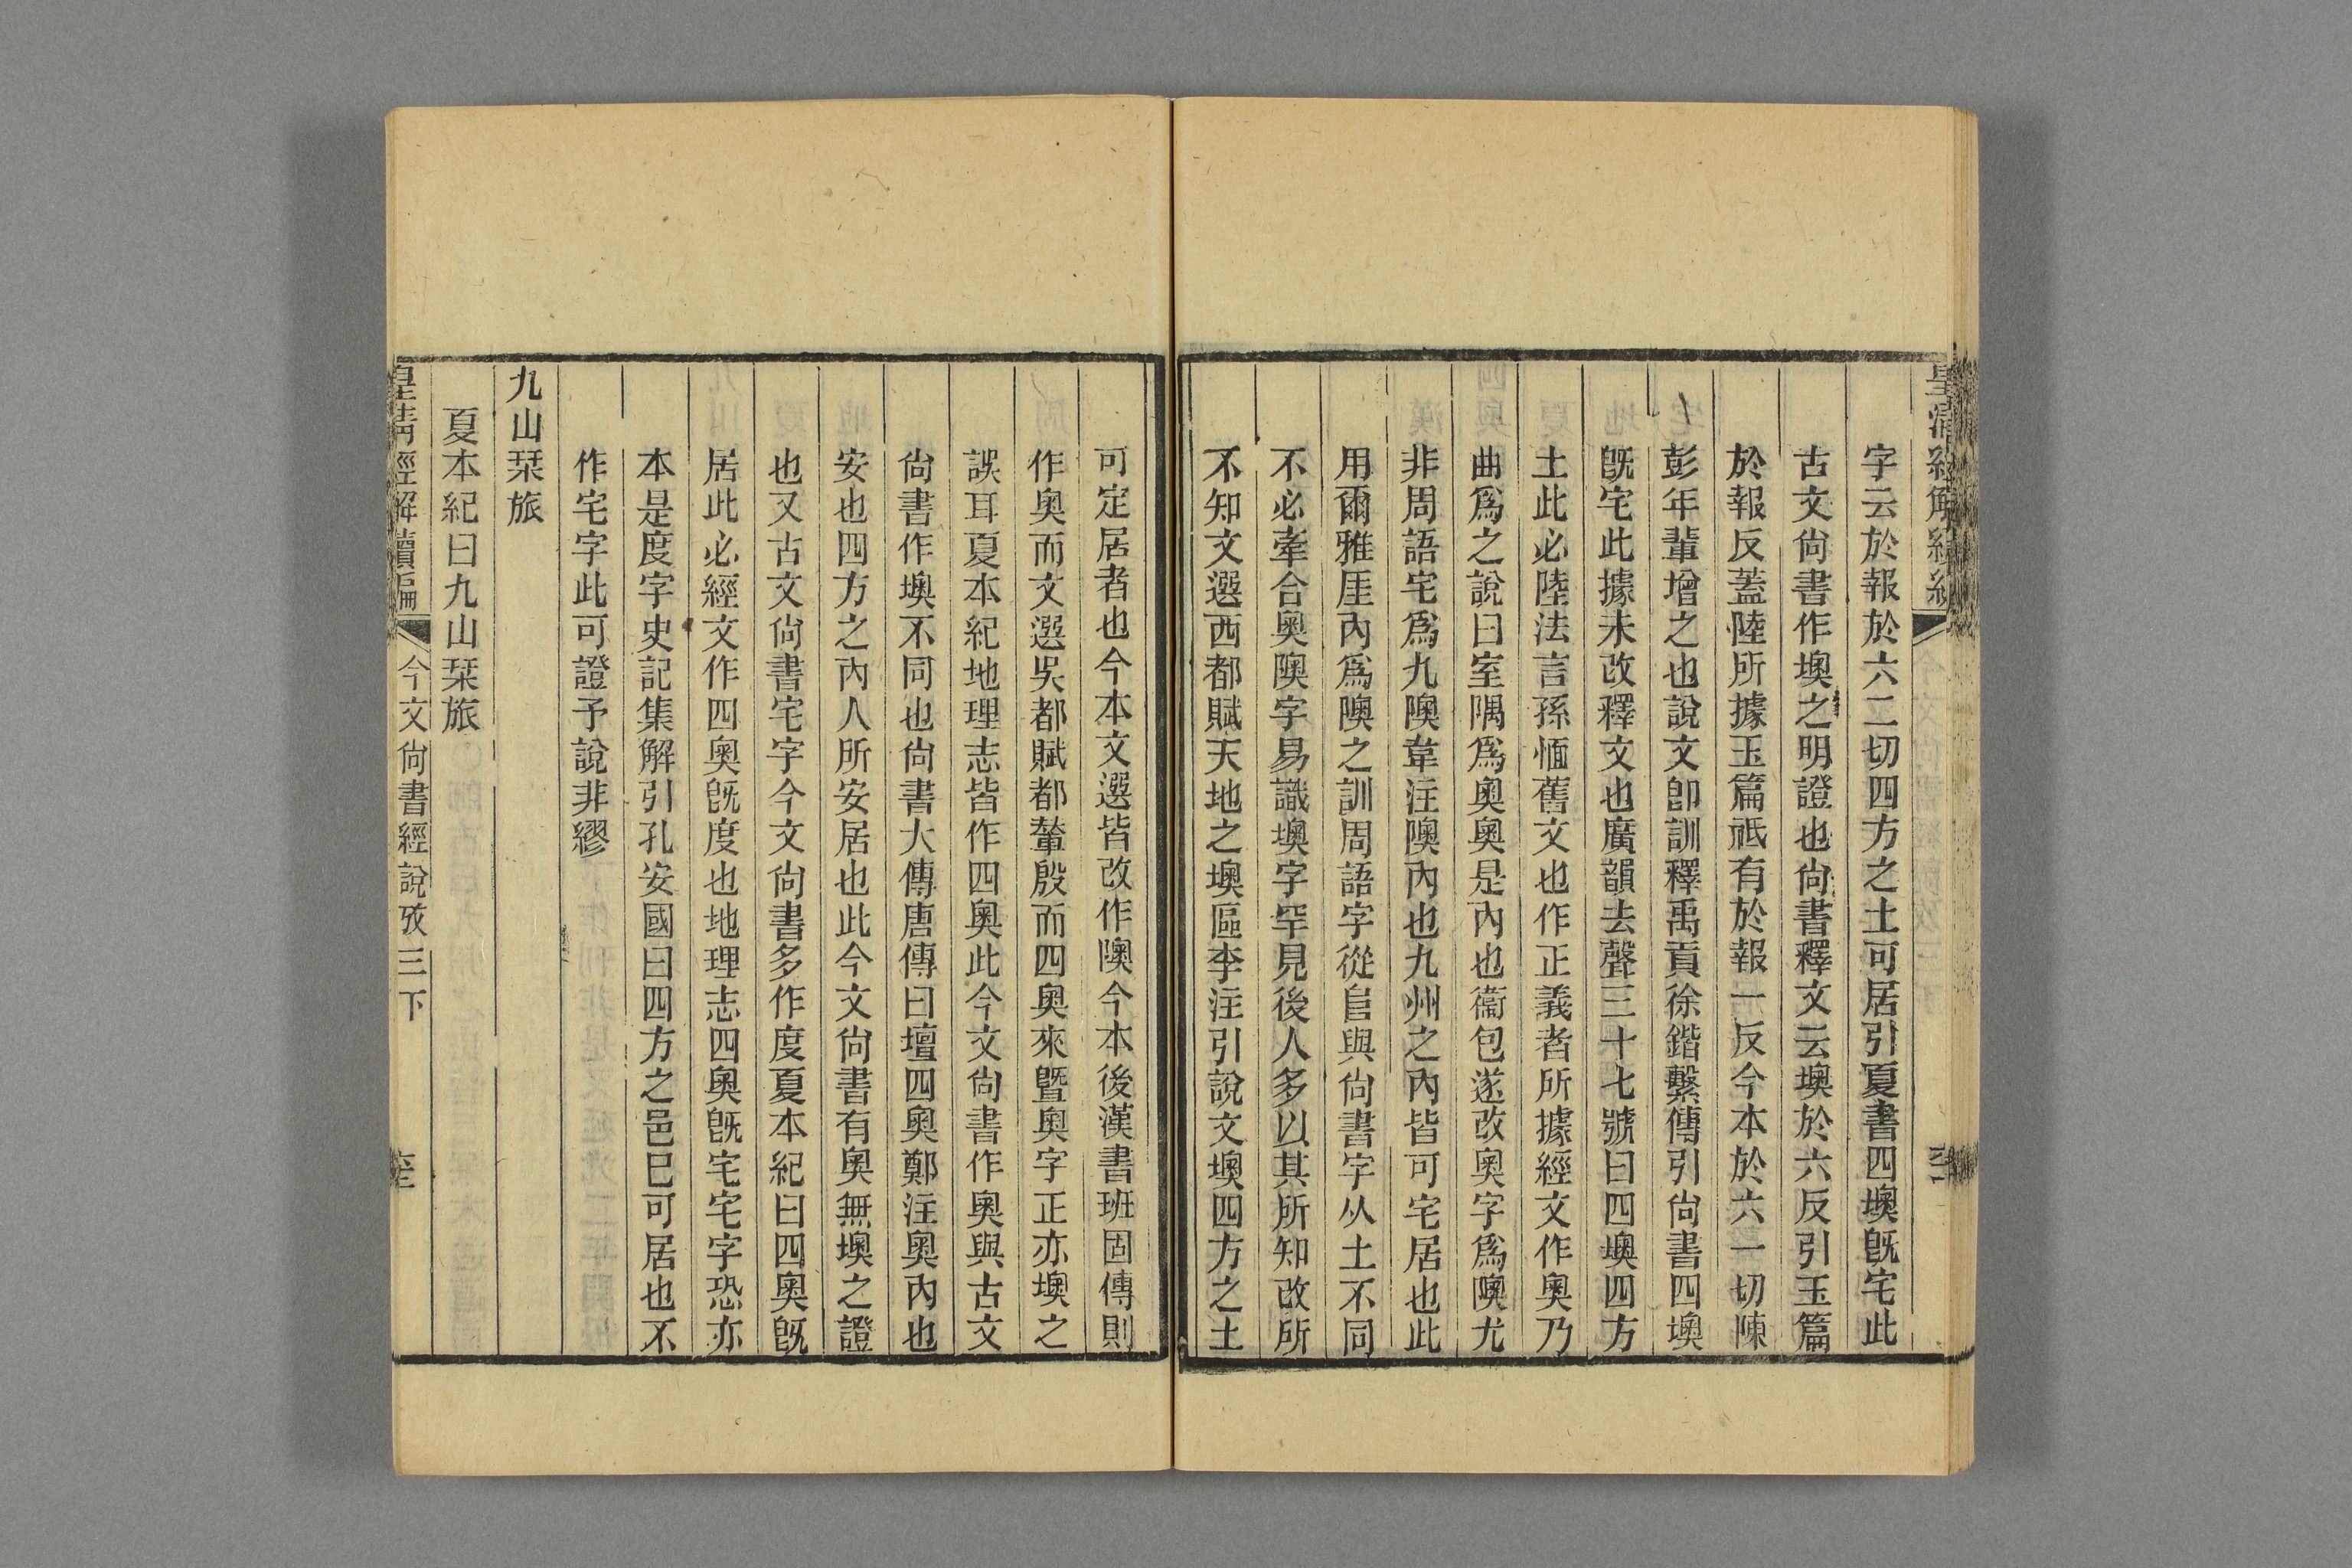 字云於報於六二切四方之土可居引夏書四墺旣宅此
古文尙書作墺之明證也尙書釋文云墺於六反引玉篇
於報反蓋陸所據玉篇祗有於報一反今本於六一切陳
彭年輩增之也說文卽訓釋禹貢徐鍇繫傳引尙書四墺
旣宅此據未改釋文也廣韻去聲三十七號曰四墺四方
土此必陸法言孫愐舊文也作正義者所據經文作奧乃
曲爲之說曰室隅爲奧奧是內也衞包遂改奧字爲隩尤
非周語宅爲九隩韋注隩內也九州之內皆可宅居也此
用爾雅厓內爲隩之訓周語字從𨸏與尙書字从土不同
不必牽合奧隩字易識墺字罕見後人多以其所知改所
不知文選西都賦天地之墺區李注引說文墺四方之土
可定居者也今本文選皆改作隩今本後漢書班固傳則
作奧而文選吳都賦都輦殷而四奧來曁奧字正亦墺之
誤耳夏本紀地理志皆作四奧此今文尙書作奧與古文
尙書作墺不同也尙書大傳唐傳曰壇四奧鄭注奧內也
安也四方之內人所安居也此今文尙書有奧無墺之證
也又古文尙書宅字今文尙書多作度夏本紀曰四奧旣
居此必經文作四奧旣度也地理志四奧旣宅宅字恐亦
本是度字史記集解引孔安國曰四方之邑已可居也不
作宅字此可證予說非繆
九山栞旅
夏本紀曰九山栞旅
皇淸經解續編
今文尙書經說攷三下